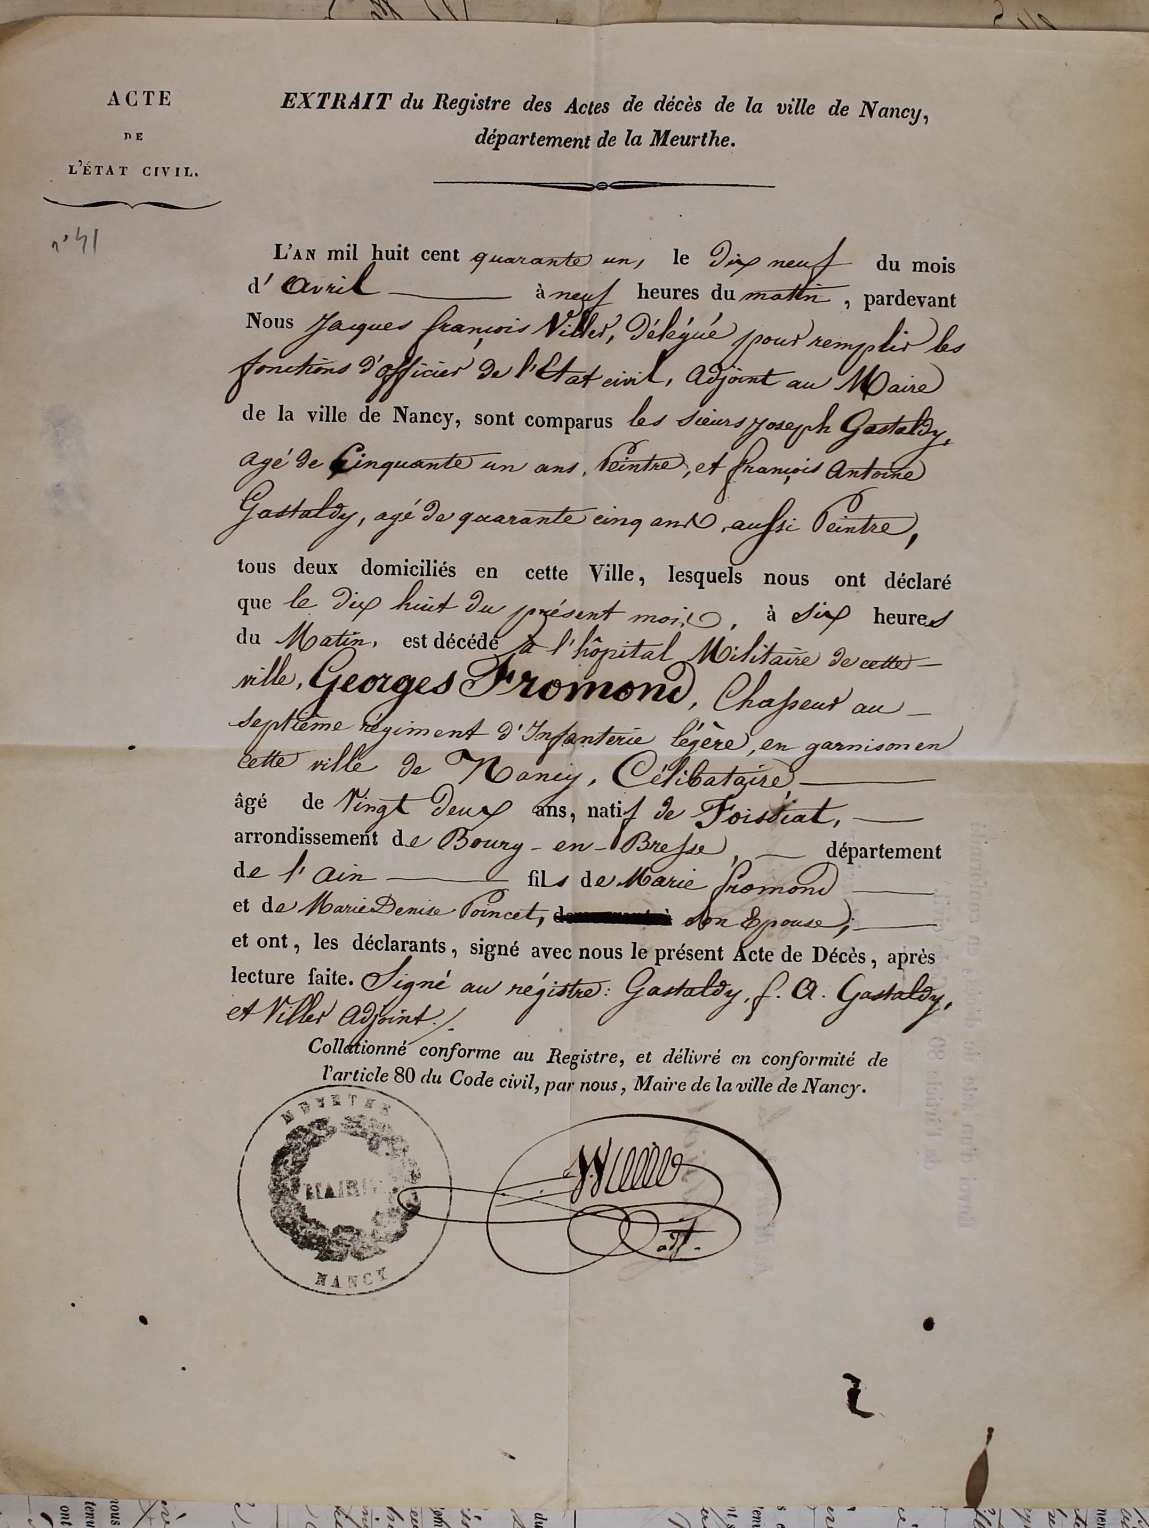 ACTE
DE
L'ÉTAT CIVIL.
n° 41
EXTRAIT du Registre des Actes de décès de la ville de Nancy,
département de la Meurthe.
L'AN mil huit cent quarante un, le dix neuf du mois
d'avril à neuf heures du matin, pardevant
Nous Jacques françois Viller, délégué pour remplir les
fonctions d'officier de l'Etat civil, adjoint au Maire
de la ville de Nancy, sont comparus les sieurs Joseph Gastaldy,
agé de Cinquante un ans, Peintre, et françois Antoine
Gastaldy, agé de quarante cinq ans, aussi Peintre,
tous deux domiciliés en cette Ville, lesquels nous ont déclaré
que le dix huit du présent mois, à six heures
du Matin, est décédé à l'hôpital Militaire de cette
ville, Georges Fromond, Chasseur au
septième régiment d'Infanterie légère, en garnison en
cette ville de Nancy, Célibataire
âgé de Vingt deux ans, natif de Foissiat,
arrondissement de Bourg-en-Bresse, département
de l'ain fils de Marie fromond
et de Marie Denise Poincet, son Epouse;
et ont, les déclarants, signé avec nous le présent Acte de Décès, après
lecture faite. Signé au régistre: Gastaldy, f. A. Gastaldy,
et Viller adjoint./.
Collationné conforme au Registre, et délivré en conformité de
l'article 80 du Code civil, par nous, Maire de la ville de Nancy.
MEURTHE
MAIRIE
NANCY
Viller
adjt.